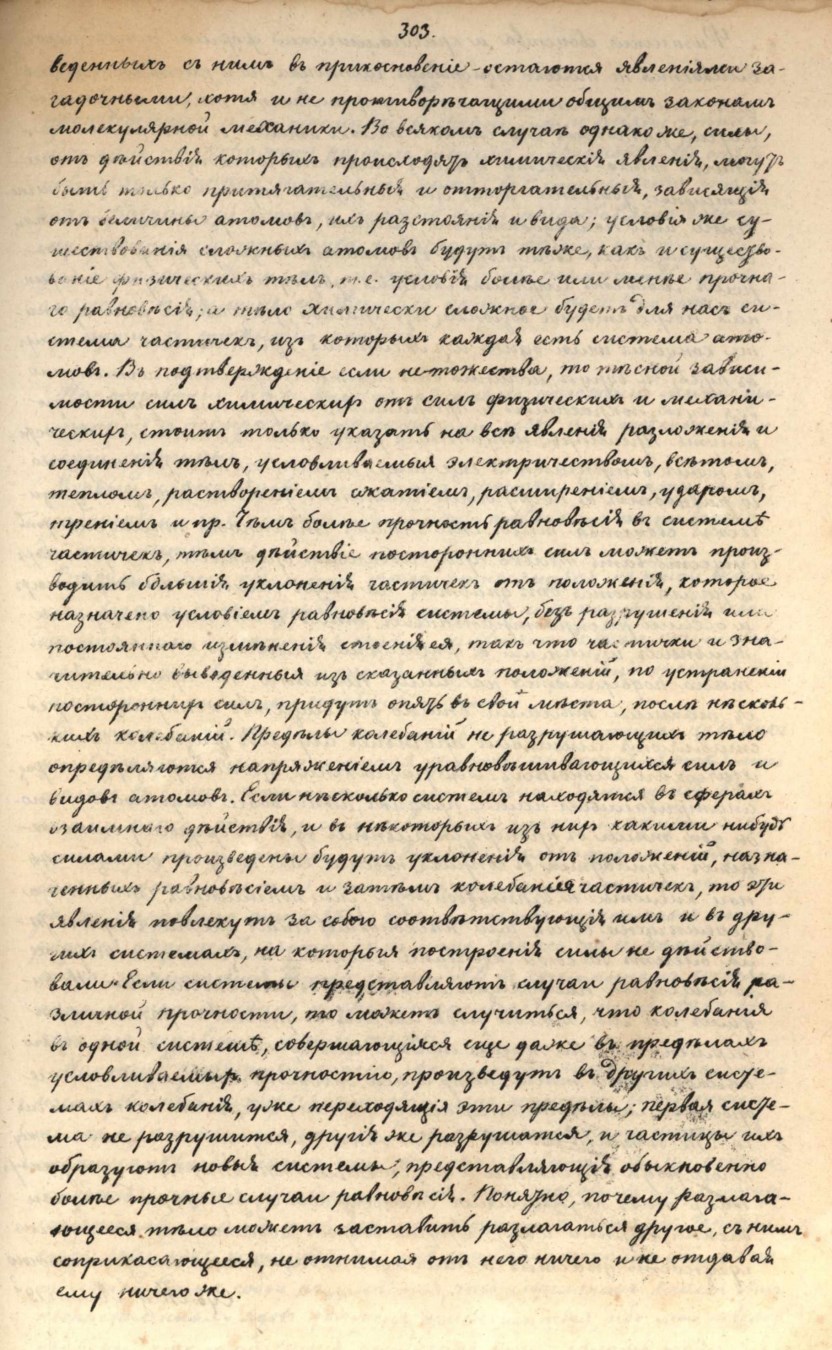 303.
веденныхъ съ нимъ въ прикосновеніе - остаются явленіями за-
гадочными, хотя и не противорѣчащими общимъ законамъ
молекулярной механики. Во всякомъ случаѣ однакоже, силы,
отъ дѣйствія которыхъ происходятъ химическія явленія, могутъ
быть только притягательныя и отторгательныя, зависящія
отъ величины атомовъ, ихъ разстоянія и вида; условія же су-
ществованія сложныхъ атомовъ будутъ тѣже, какъ и существо-
ваніе физическихъ тѣлъ, т.е. условія болѣе или менѣе прочна-
го равновѣсія; а тѣло химически сложное будетъ для насъ си-
стема частичекъ, изъ которыхъ каждая есть система ато-
мовъ. Въ подтвержденіе если не тожества, то тѣсной зависи-
мости силъ химическихъ отъ силъ физическихъ и механи-
ческихъ, стоитъ только указать на всѣ явленія разложенія и
соединенія тѣлъ, условливаемыя электричествомъ, свѣтомъ,
тепломъ, раствореніемъ сжатіемъ, расширеніемъ, ударомъ,
треніемъ и пр. Чѣмъ болѣе прочность равновѣсія въ системѣ
частичекъ, тѣмъ дѣйствіе постороннихъ силъ можетъ произ-
водить бо́льшія уклоненія частичекъ отъ положенія, которое
назначено условіемъ равновѣсія системы, безъ разрушенія или
постояннаго измѣненія строенія ея, такъ что частички и зна-
чительно выведенныя изъ сказанныхъ положеній, по устраненіи
постороннихъ силъ, придутъ опять въ свои мѣста, послѣ нѣсколь-
кихъ колебаній. Предѣлы колебаній не разрушающихъ тѣло
опредѣляются напряженіемъ уравновѣшивающихся силъ и
видовъ атомовъ. Если нѣсколько системъ находятся въ сферахъ
взаимнаго дѣйствія, и въ нѣкоторыхъ изъ нихъ какими нибудь
силами произведены будутъ уклоненія отъ положеній, назна-
ченныхъ равновѣсіемъ и затѣмъ колебанія частичекъ, то эти
явленія повлекутъ за собою соотвѣтствующія имъ и въ дру-
гихъ системахъ, на которыя построенія силы не дѣйство-
вали. Если системы представляютъ случаи равновѣсія ра-
зличной прочности, то можетъ случиться, что колебанія
въ одной системѣ, совершающіяся еще даже въ предѣлахъ
условливаемыхъ прочностію, произведутъ въ другихъ систе-
махъ колебанія, уже переходящія эти предѣлы; первая систе-
ма не разрушится, другія же разрушатся, и частицы ихъ
образуютъ новыя системы, представляющія обыкновенно
болѣе прочные случаи равновѣсія. Понятно, почему разлага-
ющееся тѣло можетъ заставить разлагаться другое, съ нимъ
соприкасающееся, не отнимая отъ него ничего и не отдавая
ему ничего же.